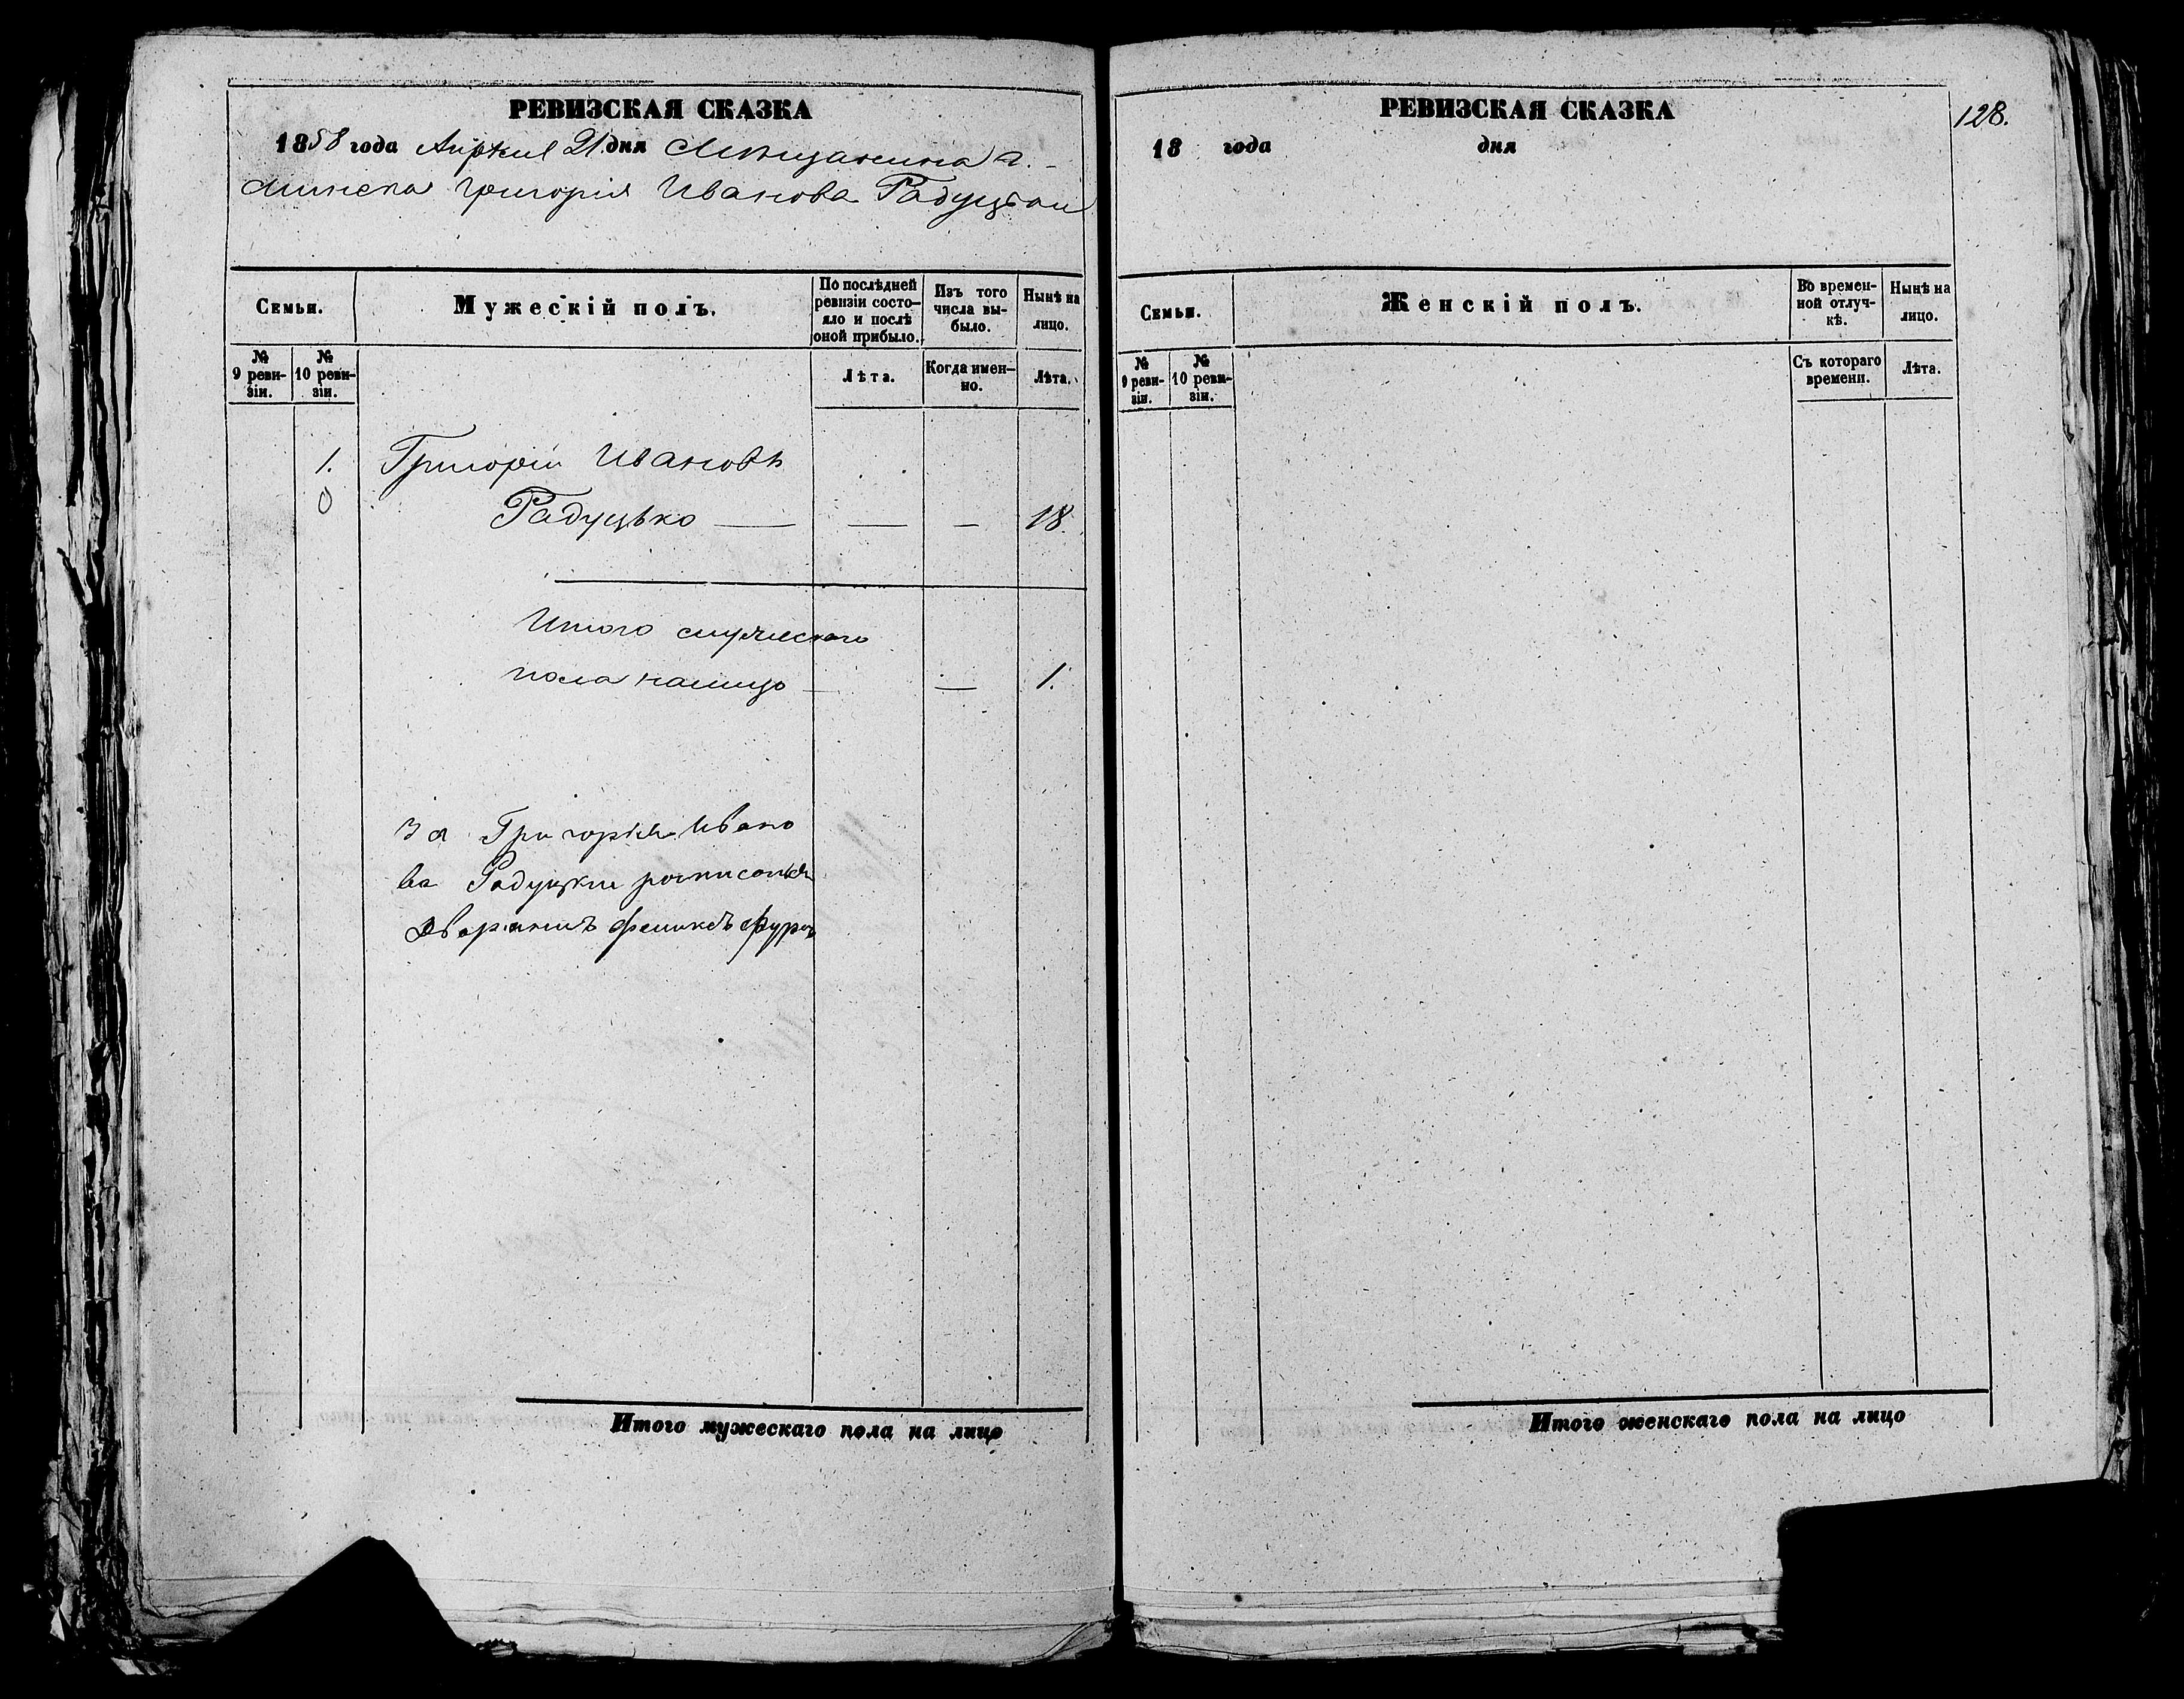 РЕВИЗСКАЯ СКАЗКА
1858 года Апреля 21 дня Мещанина г.
Минска Григорія Иванова Радуцьки
Семьи.
Мужескій полъ.
По послѣдней ревизіи состояло и послѣ оной прибыло.
Изъ того числа выбыло.
Нынѣ на лицо.
№ 9 ревизіи.
№ 10 ревизіи.
Лѣта.
Когда именно.
Лѣта.
1. Григорій Ивановъ
0 Радуцько — — — 18.
Итого мужескаго
пола налицо — — 1.
За Григорія Ивано
ва Радуцки росписался
дворянинъ Феликсъ
Итого мужескаго пола на лицо
128.
РЕВИЗСКАЯ СКАЗКА
18 года дня
Семьи.
Женскій полъ.
Во временной отлучкѣ.
Нынѣ на лицо.
№ 9 ревизіи.
№ 10 ревизіи.
Съ котораго времени.
Лѣта.
Итого женскаго пола на лицо